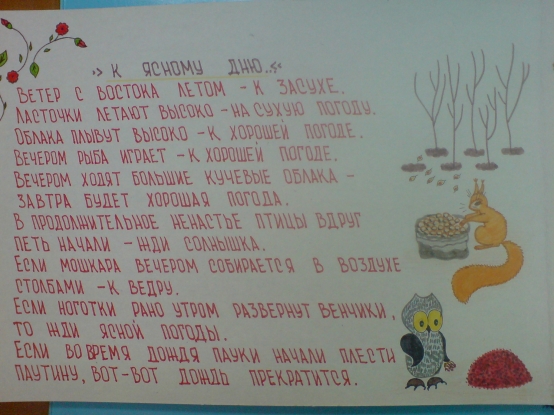 ›› К ЯСНОМУ ДНЮ..‹‹
ВЕТЕР С ВОСТОКА ЛЕТОМ – К ЗАСУХЕ.
ЛАСТОЧКИ ЛЕТАЮТ ВЫСОКО – НА СУХУЮ ПОГОДУ.
ОБЛАКА ПЛЫВУТ ВЫСОКО – К ХОРОШЕЙ ПОГОДЕ.
ВЕЧЕРОМ РЫБА ИГРАЕТ – К ХОРОШЕЙ ПОГОДЕ.
ВЕЧЕРОМ ХОДЯТ БОЛЬШИЕ КУЧЕВЫЕ ОБЛАКА –
ЗАВТРА БУДЕТ ХОРОШАЯ ПОГОДА.
В ПРОДОЛЖИТЕЛЬНОЕ НЕНАСТЬЕ ПТИЦЫ ВДРУГ
ПЕТЬ НАЧАЛИ – ЖДИ СОЛНЫШКА.
ЕСЛИ МОШКАРА ВЕЧЕРОМ СОБИРАЕТСЯ В ВОЗДУХЕ
СТОЛБАМИ – К ВЕДРУ.
ЕСЛИ НОГОТКИ РАНО УТРОМ РАЗВЕРНУТ ВЕНЧИКИ,
ТО ЖДИ ЯСНОЙ ПОГОДЫ.
ЕСЛИ ВО ВРЕМЯ ДОЖДЯ ПАУКИ НАЧАЛИ ПЛЕСТИ
ПАУТИНУ, ВОТ-ВОТ ДОЖДЬ ПРЕКРАТИТСЯ.